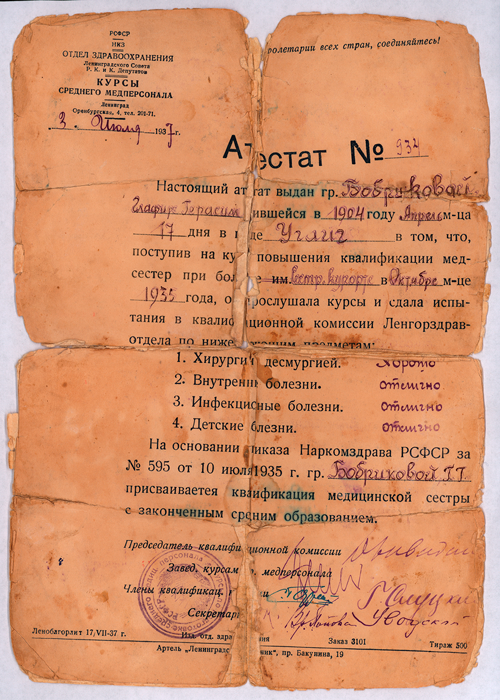 РСФСР
НКЗ
ОТДЕЛ ЗДРАВООХРАНЕНИЯ
Ленинградского Совета
Р. К. и К. Депутатов
КУРСЫ
СРЕДНЕГО МЕДПЕРСОНАЛА
Ленинград
Оренбургская, 4, тел. 201-71.
3. Июля 1937 г.
ролетарии всех стран, соединяйтесь!
Ат естат № 934
Настоящий ат тат выдан гр. Бобриковой
Глафире Герасим ившейся в 1904 году Апрель м-ца
17 дня в г де Углич в том, что,
поступив на ку повышения квалификации мед-
сестер при бол е им. в Октябре м-це
1935 года, о прослушала курсы и сдала испы-
тания в квали ционной комиссии Ленгорздрав-
отдела по ниже ющим предметам:
1. Хирурги десмургией. Хорошо
2. Внутренн болезни. отлично
3. Инфекц ые болезни. отлично
4. Детские лезни. отлично
На основании каза Наркомздрава РСФСР за
№ 595 от 10 июля 1935 г. гр. Бобриковой Г.Г.
присваивается квалификация медицинской сестры
с законченным средним образованием.
Председатель квалифи ционной комиссии
Завед. курсам медперсонала
Члены квалификац.
Секретар
Ленобгорлит 17/VII-37 г. Изд. отд. здра Заказ 3101 Тираж 500
Артель „Ленинградс ник", пр. Бакунина, 19